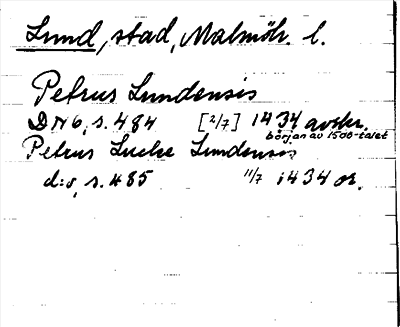 Lund, stad, Malmöh. l.
Petrus Lundensis
DN 6, s. 484 [2/7] 1434 avskr.
början av 1500-talet
Petrus Lucke Lundensis
d:o, s. 485 11/7 1434 or.